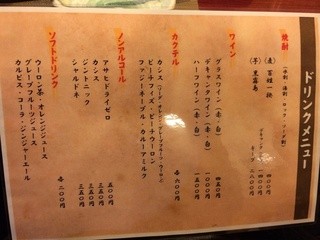 ドリンクメニュー
焼酎
(水割・湯割・ロック・ソーダ割)
(麦) 百姓一揆 四〇〇円
(芋) 黒霧島
ワイン
グラスワイン(赤・白) 四五〇円
デキャンタワイン(赤・白) 一〇〇〇円
ハーフワイン(赤・白) 一五〇〇円
カクテル
カシス(ソーダ・オレンジ・グレープフルーツ・ウーロン)
ピーチフィズ・ピーチウーロン
ファジーネーブル・カルーアミルク
各 六〇〇円
ノンアルコール
アサヒドライゼロ 五〇〇円
カシス 三五〇円
ジントニック 三五〇円
シャルドネ 三五〇円
ソフトドリンク
ウーロン茶・オレンジジュース
グレープフルーツジュース
カルピス・コーラ・ジンジャーエール
各 二〇〇円